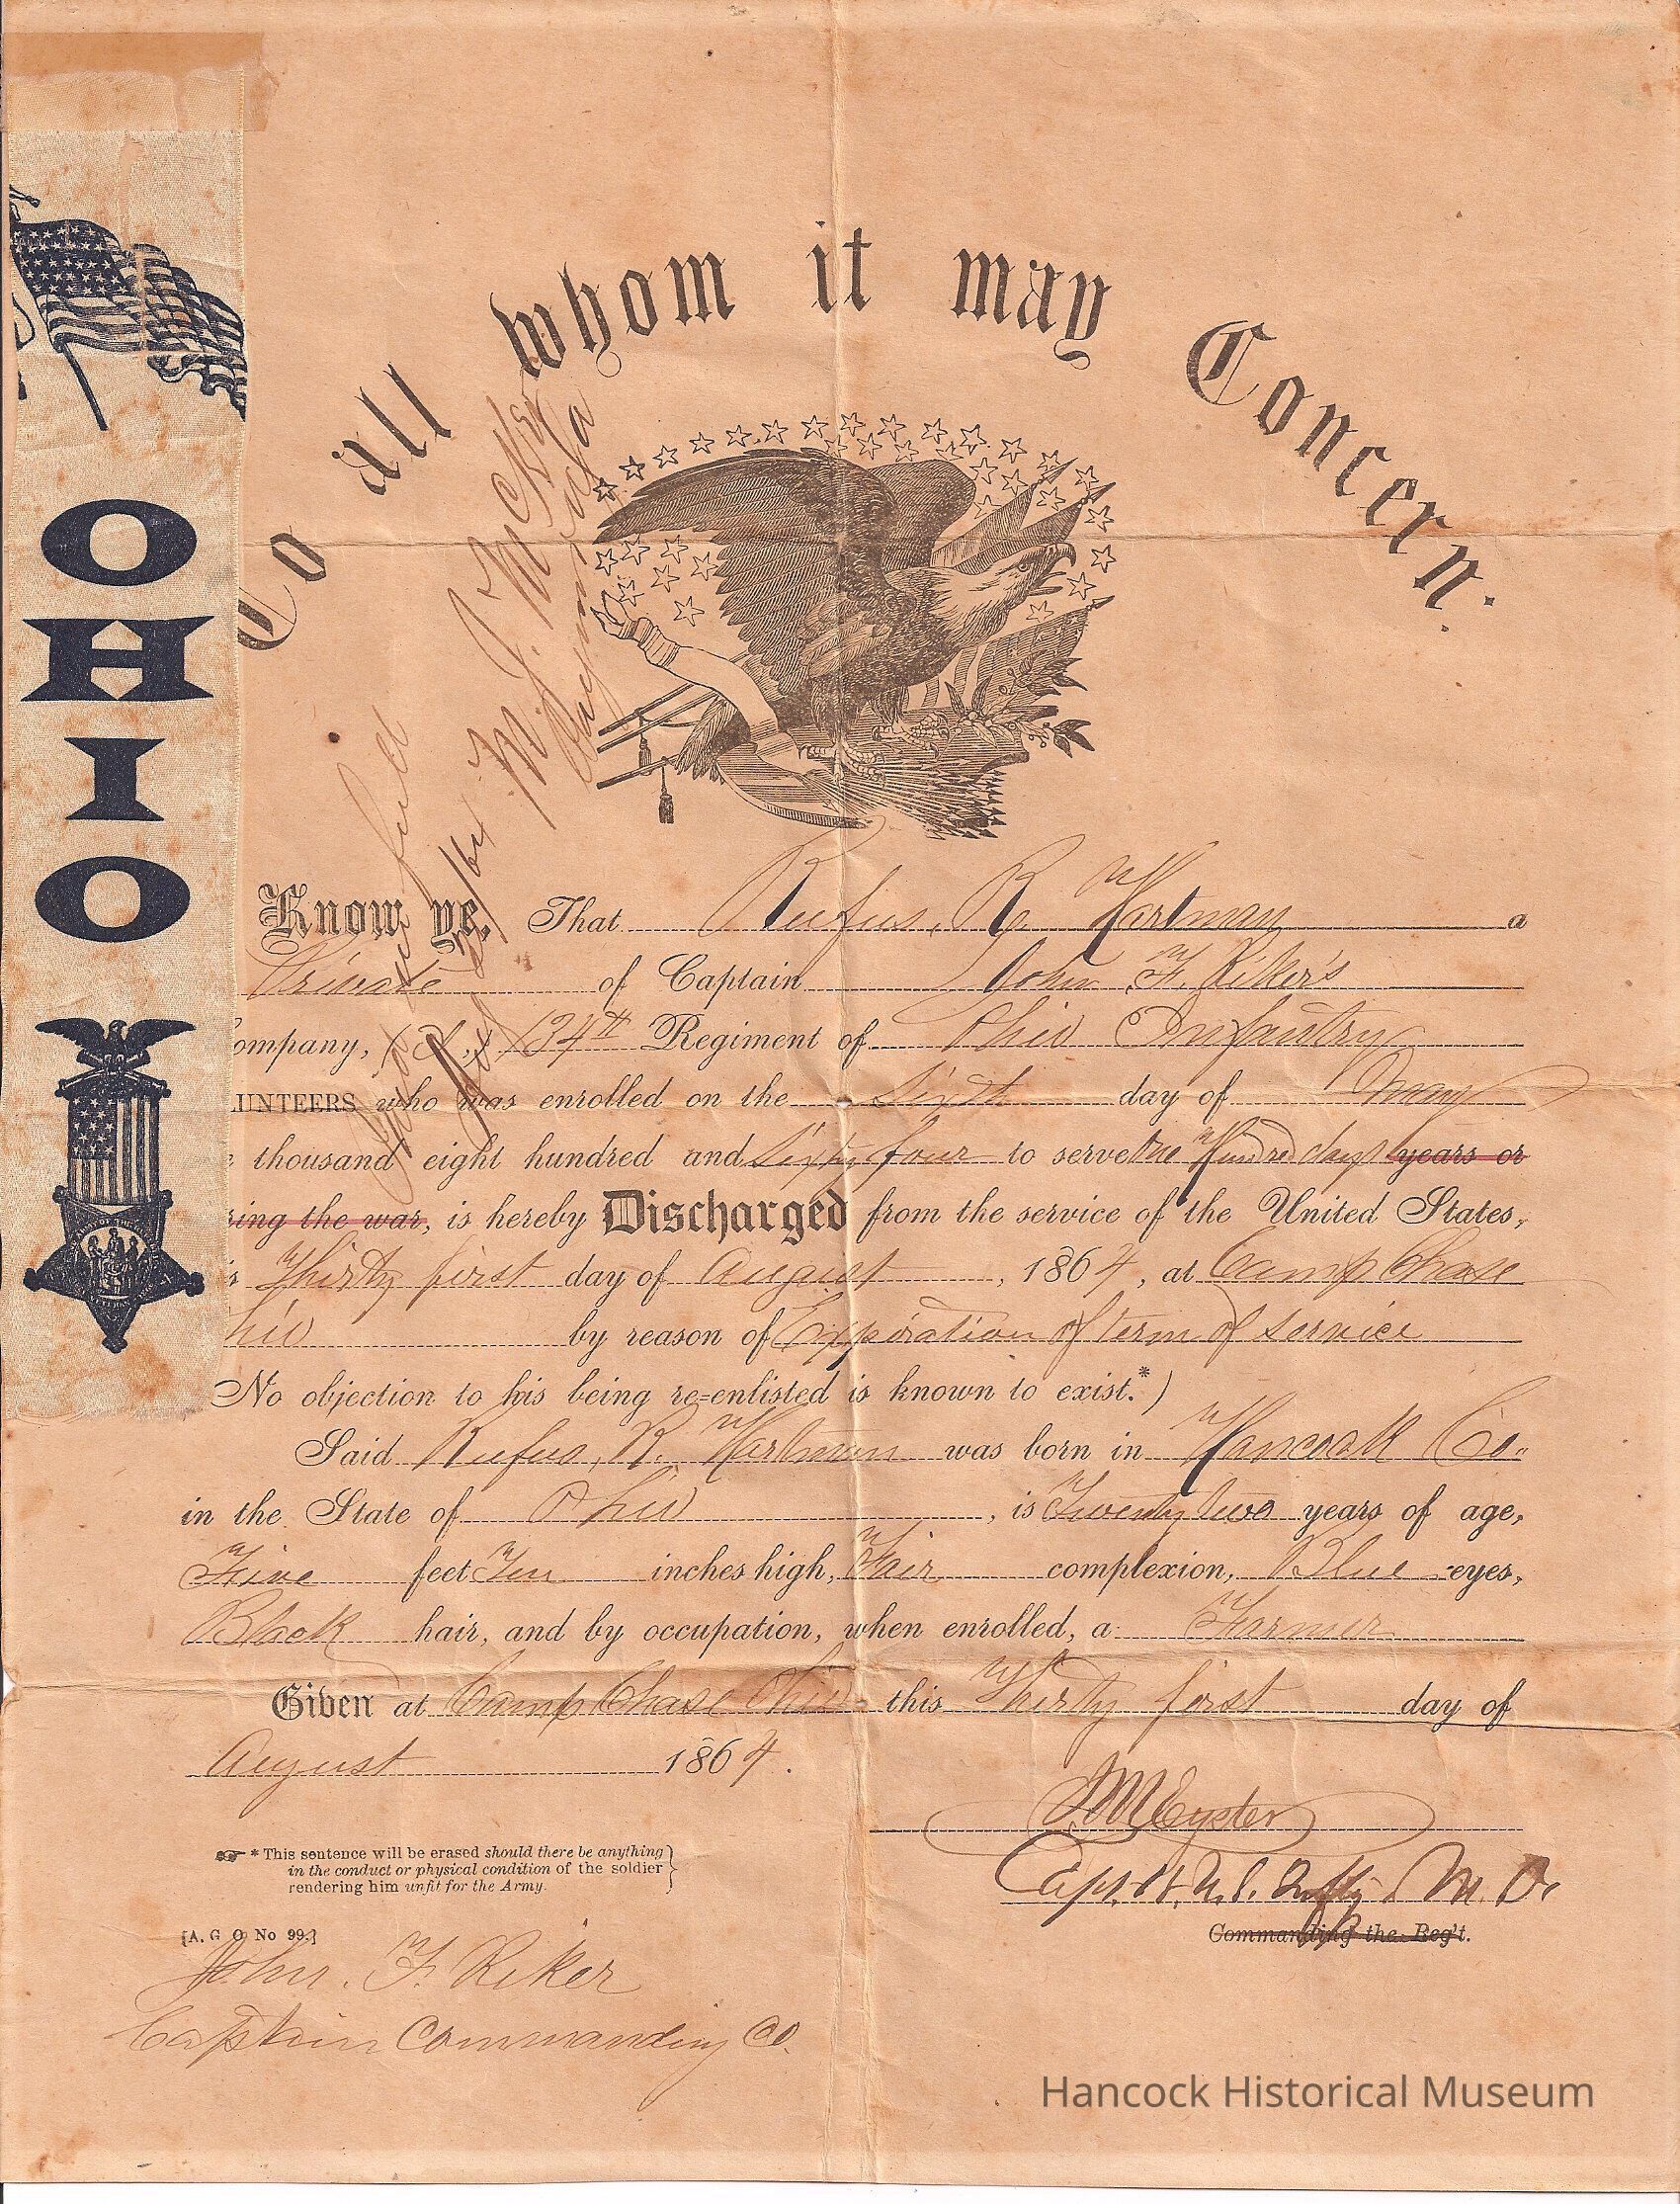 To all whom it may Concern.
OHIO
Paid in full
Sept 21/64
M. J. McK
Paymaster
Know ye, That Rufus, R. Hartman a
Private of Captain John F. Riker's
ompany, 134th Regiment of Ohio Infantry
UNTEERS who was enrolled on the Sixth day of May
thousand eight hundred and Sixty four to serve One Hundred days years or
ring the war, is hereby Discharged from the service of the United States,
s Thirty first day of August, 1864, at Camp Chase
hio by reason of Expiration of term of service
No objection to his being re-enlisted is known to exist.*)
Said Rufus, R. Hartman was born in Hancock Co.
in the State of Ohio, is Twenty two years of age,
Five feet Ten inches high, Fair complexion, Blue eyes,
Black hair, and by occupation, when enrolled, a Farmer
Given at Camp Chase Ohio this Thirty first day of
August 1864.
Eyster
Capt. U.S. Infty M. O.
Commanding the Reg't.
* This sentence will be erased should there be anything
in the conduct or physical condition of the soldier
rendering him unfit for the Army.
[A. G. O. No 99.]
John. F. Riker
Captain Commanding Co.
Hancock Historical Museum